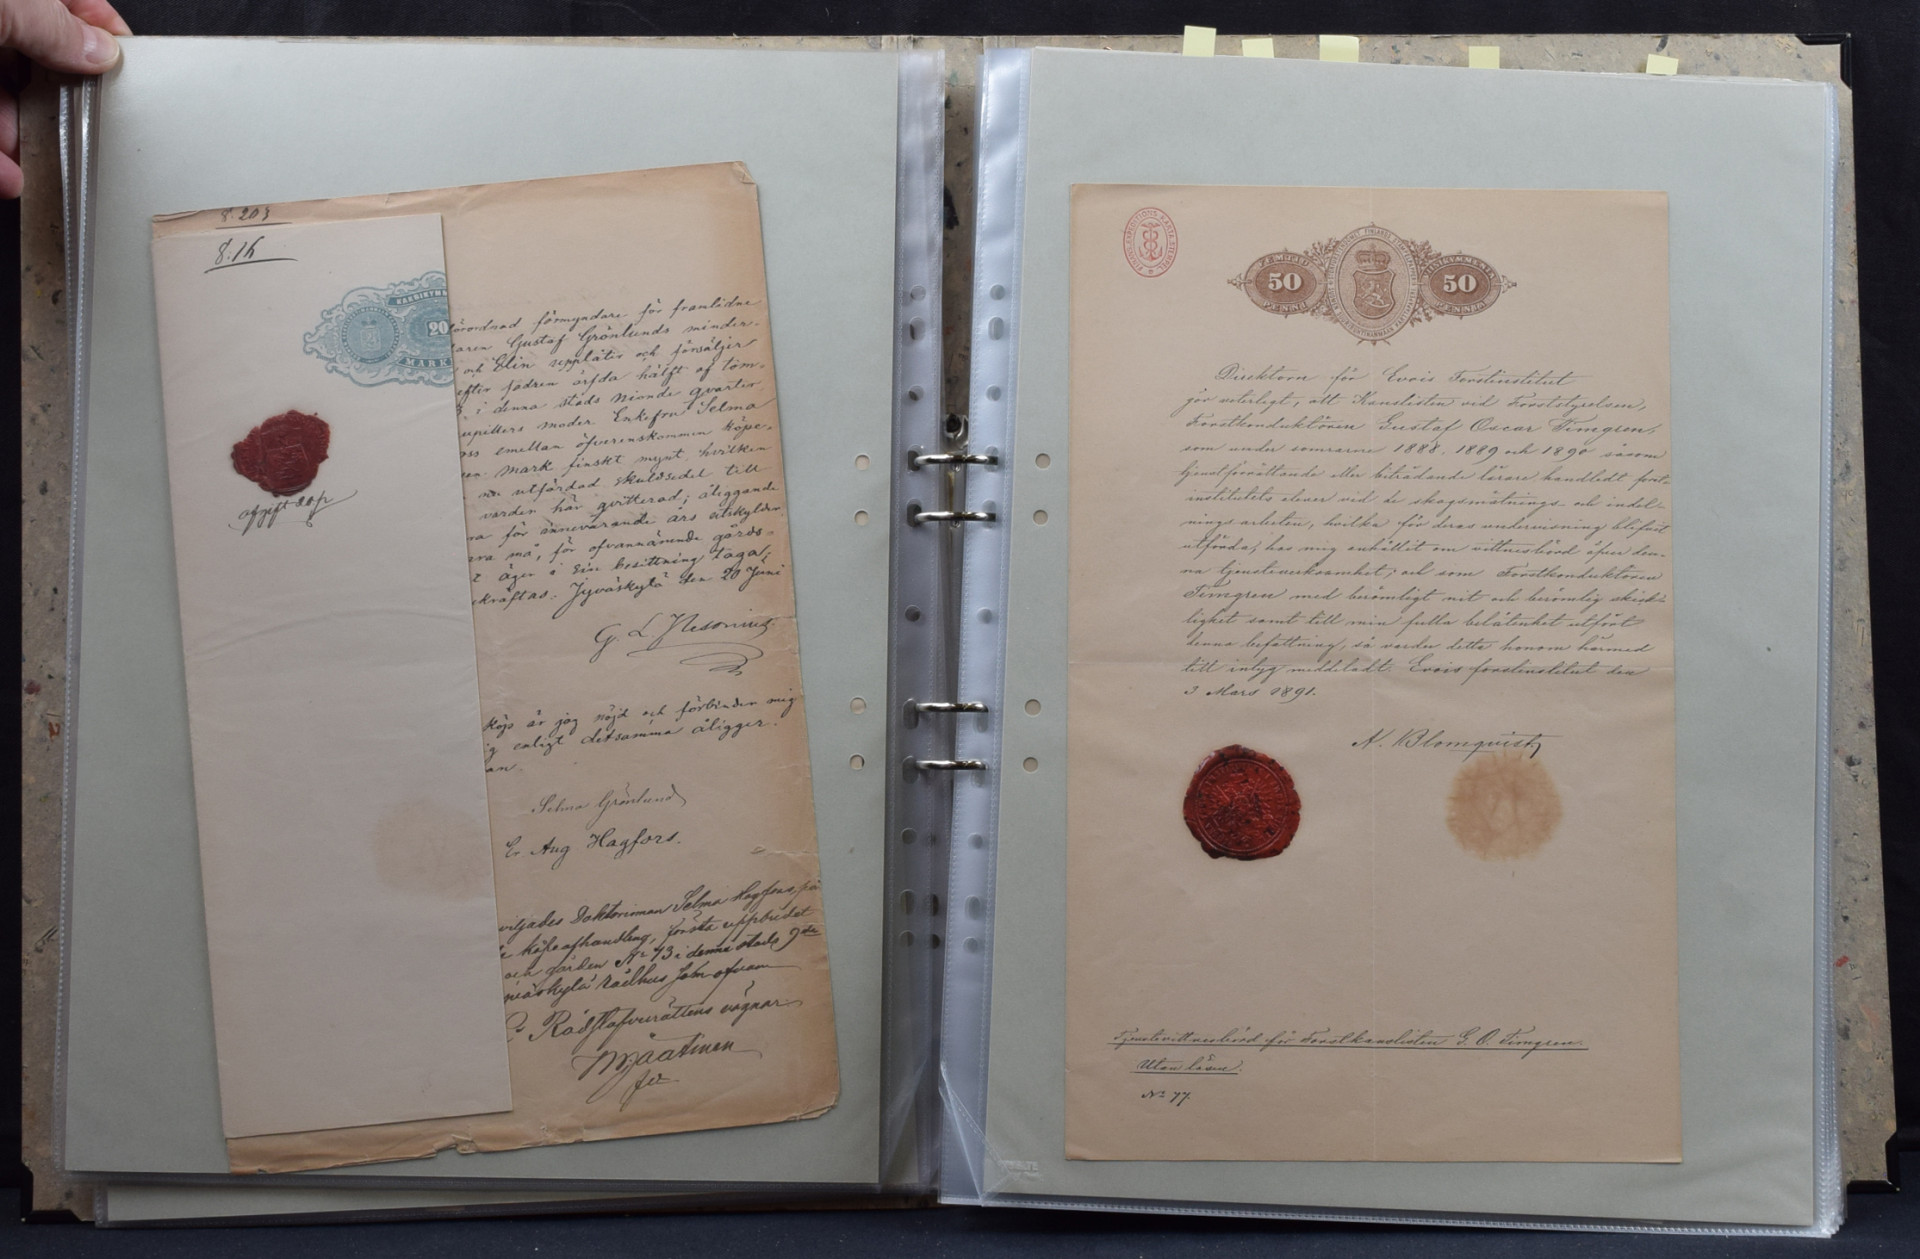 8.203
8.16
20
MARK
afgift 20 p
förordnad förmyndare för framlidne
Gustaf Grönlunds minder-
och Elin upplåter och försäljer
efter fadren ärfda hälft af tom-
i denna stads nionde qvarter
moder Enkefru Selma
oss emellan öfverenskommen köpe-
mark finskt mynt, hvilken
utfärdad skuldsedel till
varder här qvitterad; åliggande
för innevarande års
må, för ofvannämnde gårds-
äger i sin besittning taga;
Jyväskylä den 20 Juni
G. L.
köp är jag nöjd och förbinder mig
enligt detsamma åligger.
Selma Grönlund
Aug Hagfors.
Doktorinnan Selma Hagfors, på
köpeafhandling, första uppbudet
och gården No 73 i denna stads 9de
rådhus som ofvan
Rådstufvurättens vägnar
FINSKA EXPEDITIONS KARTA STEMPEL
50 PENNIÄ
50 PENNIÄ
Direktorn för Evois Forstinstitut
gör veterligt, att Kanslisten vid Forststyrelsen,
Forstkonduktören Gustaf Oscar Timgren,
som under somrarne 1888, 1889 och 1890 såsom
tjenstförrättande eller biträdande lärare handledt forst-
institutets elever vid de skogsmätnings- och indel-
ningsarbeten, hvilka för deras undervisning blifvit
utförda, hos mig anhållit om vittnesbörd öfver den-
na tjensteverksamhet; och som Forstkonduktören
Timgren med berömligt nit och berömlig skick-
lighet samt till min fulla belåtenhet utfört
denna befattning, så varder detta honom härmed
till intyg meddeladt. Evois forstinstitut den
3 Mars 1891.
A. Blomqvist
Tjenstevittnesbörd för Forstkanslisten G. O. Timgren.
Utan lösen.
No 77.